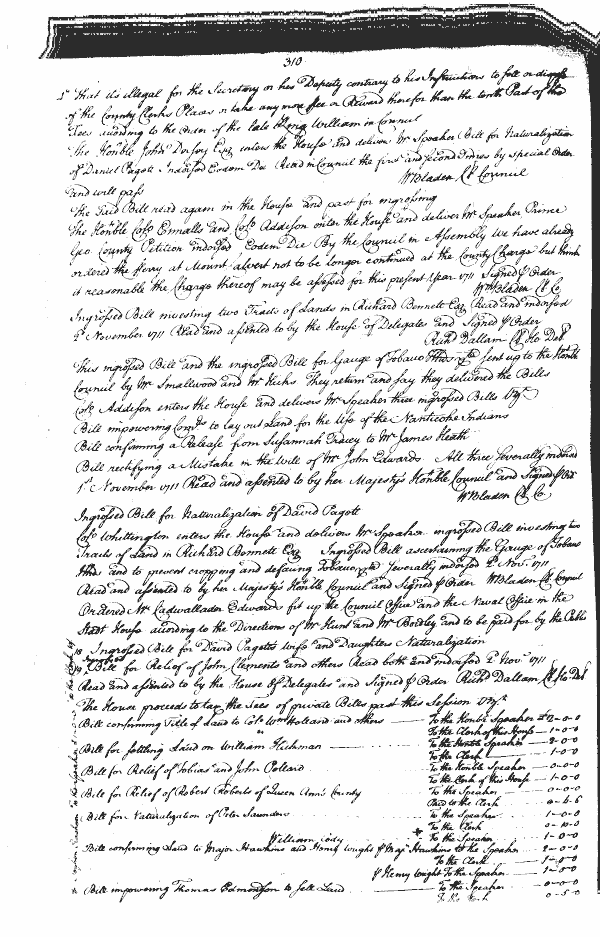 310
1st That its illegal for the Secretary or his Deputy contrary to his Instructions to sell or dispose
of the County Clerks Places or take any more fee or Reward therefor than the tenth Part of the
Fees according to the Order of the late King William in Council
The Honble John Dorsey Esq enters the House and delivers Mr Speaker Bill for Naturalization
of Daniel Pagett Indorsed Eodem Die Read in Council the first and second times by special Order
and will pass Wm Bladen Cl Council
The said Bill read again in the House and past for engrossing
The Honble Colo Ennalls and Colo Addison enter the House and deliver Mr Speaker Prince
Geo. County Petition indorsed Eodem Die By the Council in Assembly We have already
ordered the Ferry at Mount Calvert not to be longer continued at the County Charge but think
it reasonable the Charge thereof may be assessed for this present Year 1711 Signed p Order
Wm Bladen Cl Co
Ingrossed Bill investing two Tracts of Lands in Richard Bennett Esq Read and indorsed
2d November 1711 Read and assented to by the House of Delegates and Signed p Order
Richd Dallam Cl Ho Del
This ingrossed Bill and the ingrossed Bill for Gauge of Tobacco sent up to the Honble
Council by Mr Smallwood and Mr Hicks They return and say they delivered the Bills
Colo Addison enters the House and delivers Mr Speaker three ingrossed Bills Vizt
Bill impowering Comrs to lay out Land for the Use of the Nanticoke Indians
Bill confirming a Release from Susannah to Mr James Heath
Bill rectifying a Mistake in the Will of Mr John Edwards All three severally indorsed
1st November 1711 Read and assented to by her Majesty's Honble Council and Signed p Ord
Wm Bladen Cl Co
Ingrossed Bill for Naturalization of David Pagett
Colo Whittington enters the House and delivers Mr Speaker ingrossed Bill investing two
Tracts of Land in Richard Bennett Esq Ingrossed Bill ascertaining the Gauge of Tobacco
Hhds and to prevent cropping and defacing Tobacco severally indorsed 2d Nov. 1711
Read and assented to by her Majestys Honble Council and Signed p Order Wm Bladen Cl Council
Ordered Mr Cadwallader Edwards fit up the Council Office and the Naval Office in the
Stadt House according to the Directions of Mr Hunt and Mr Bordley and to be paid for by the Public
18 Ingrossed Bill for David Pagetts wife and Daughters Naturalization
19 Ingrossed Bill for Relief of John Clements and others Read both and indorsed 2d Novr 1711
Read and assented to by the House of Delegates and Signed p Order Richd Dallam Cl Ho Del
The House proceeds to tax the Fees of private Bills past this Session Vizt
Bill confirming Title of Land to Colo Wm Holland and others To the Honble Speaker
To the Clerk of this House 1-0-0
Bill for settling Land on William Hickman To the Honble Speaker
To the Clerk 1-0-0
Bill for Relief of Tobias and John Pollard To the Honble Speaker 0-0-0
To the Clerk of this House 1-0-0
Bill for Relief of Robert Roberts of Queen Ann's County To the Speaker 0-0-0
Paid to the Clerk
Bill for Naturalization of Peter To the Speaker 1-0-0
To the Clerk
William Cody To the Speaker 1-0-0
Bill confirming Land to Major Hawkins and Henry Wright p Majr Hawkins to the Speaker
To the Clerk 1-0-0
p Henry Wright To the Speaker 1-0-0
Bill impowering Thomas Edmondson to sell Land To the Speaker 0-0-0
To the Clerk 0-5-0